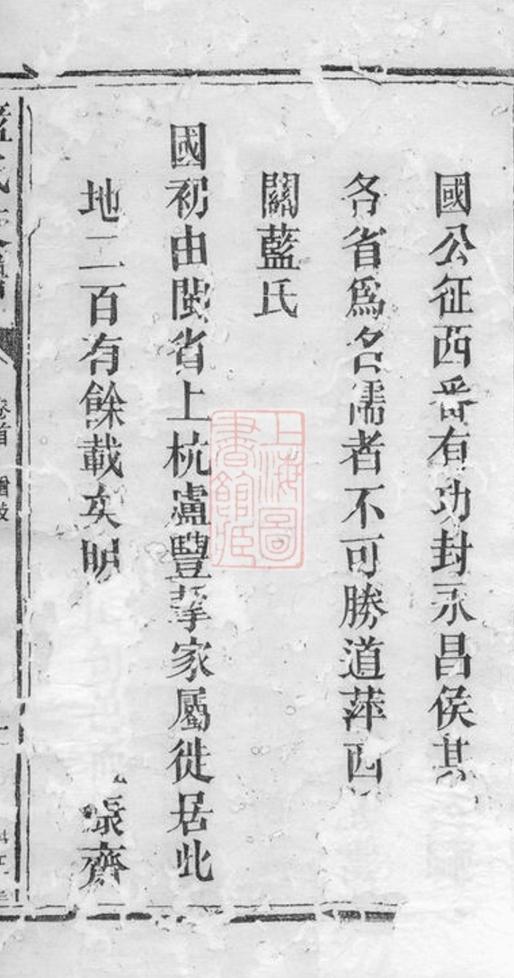 國公征西番有功封永昌侯其
各省爲名儒者不可勝道萍西
關藍氏
國初由閩省上杭瀘豐挈家屬徙居此
地二百有餘載矣明
齊
卷首
上海圖書館藏